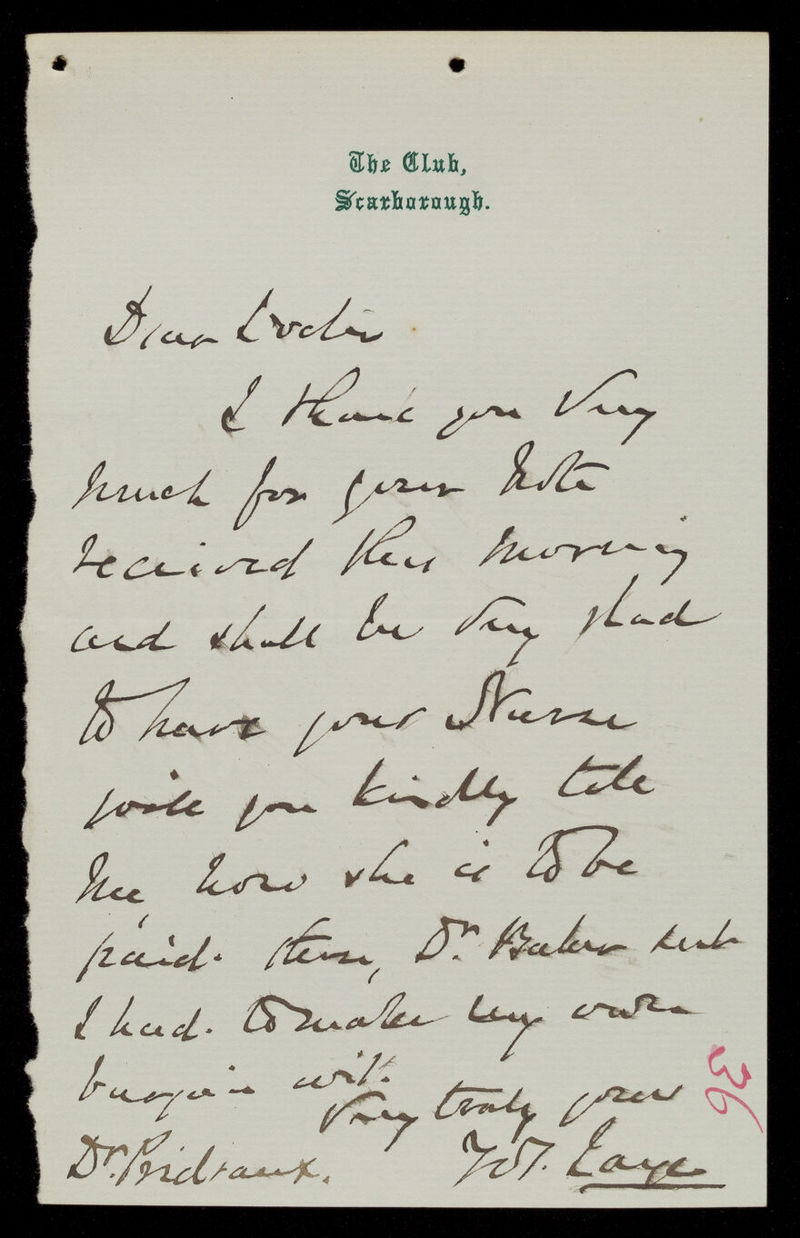 The Club,
Scarborough.
Dear Doctor
I thank you very
much for your note
received this morning
and shall be very glad
to have your Nurse
will you kindly tell
me, how she is to be
paid. Dr. Baker sent
I had. to make my own
bargain with.
Very truly yours
Dr. Prideaux.
36